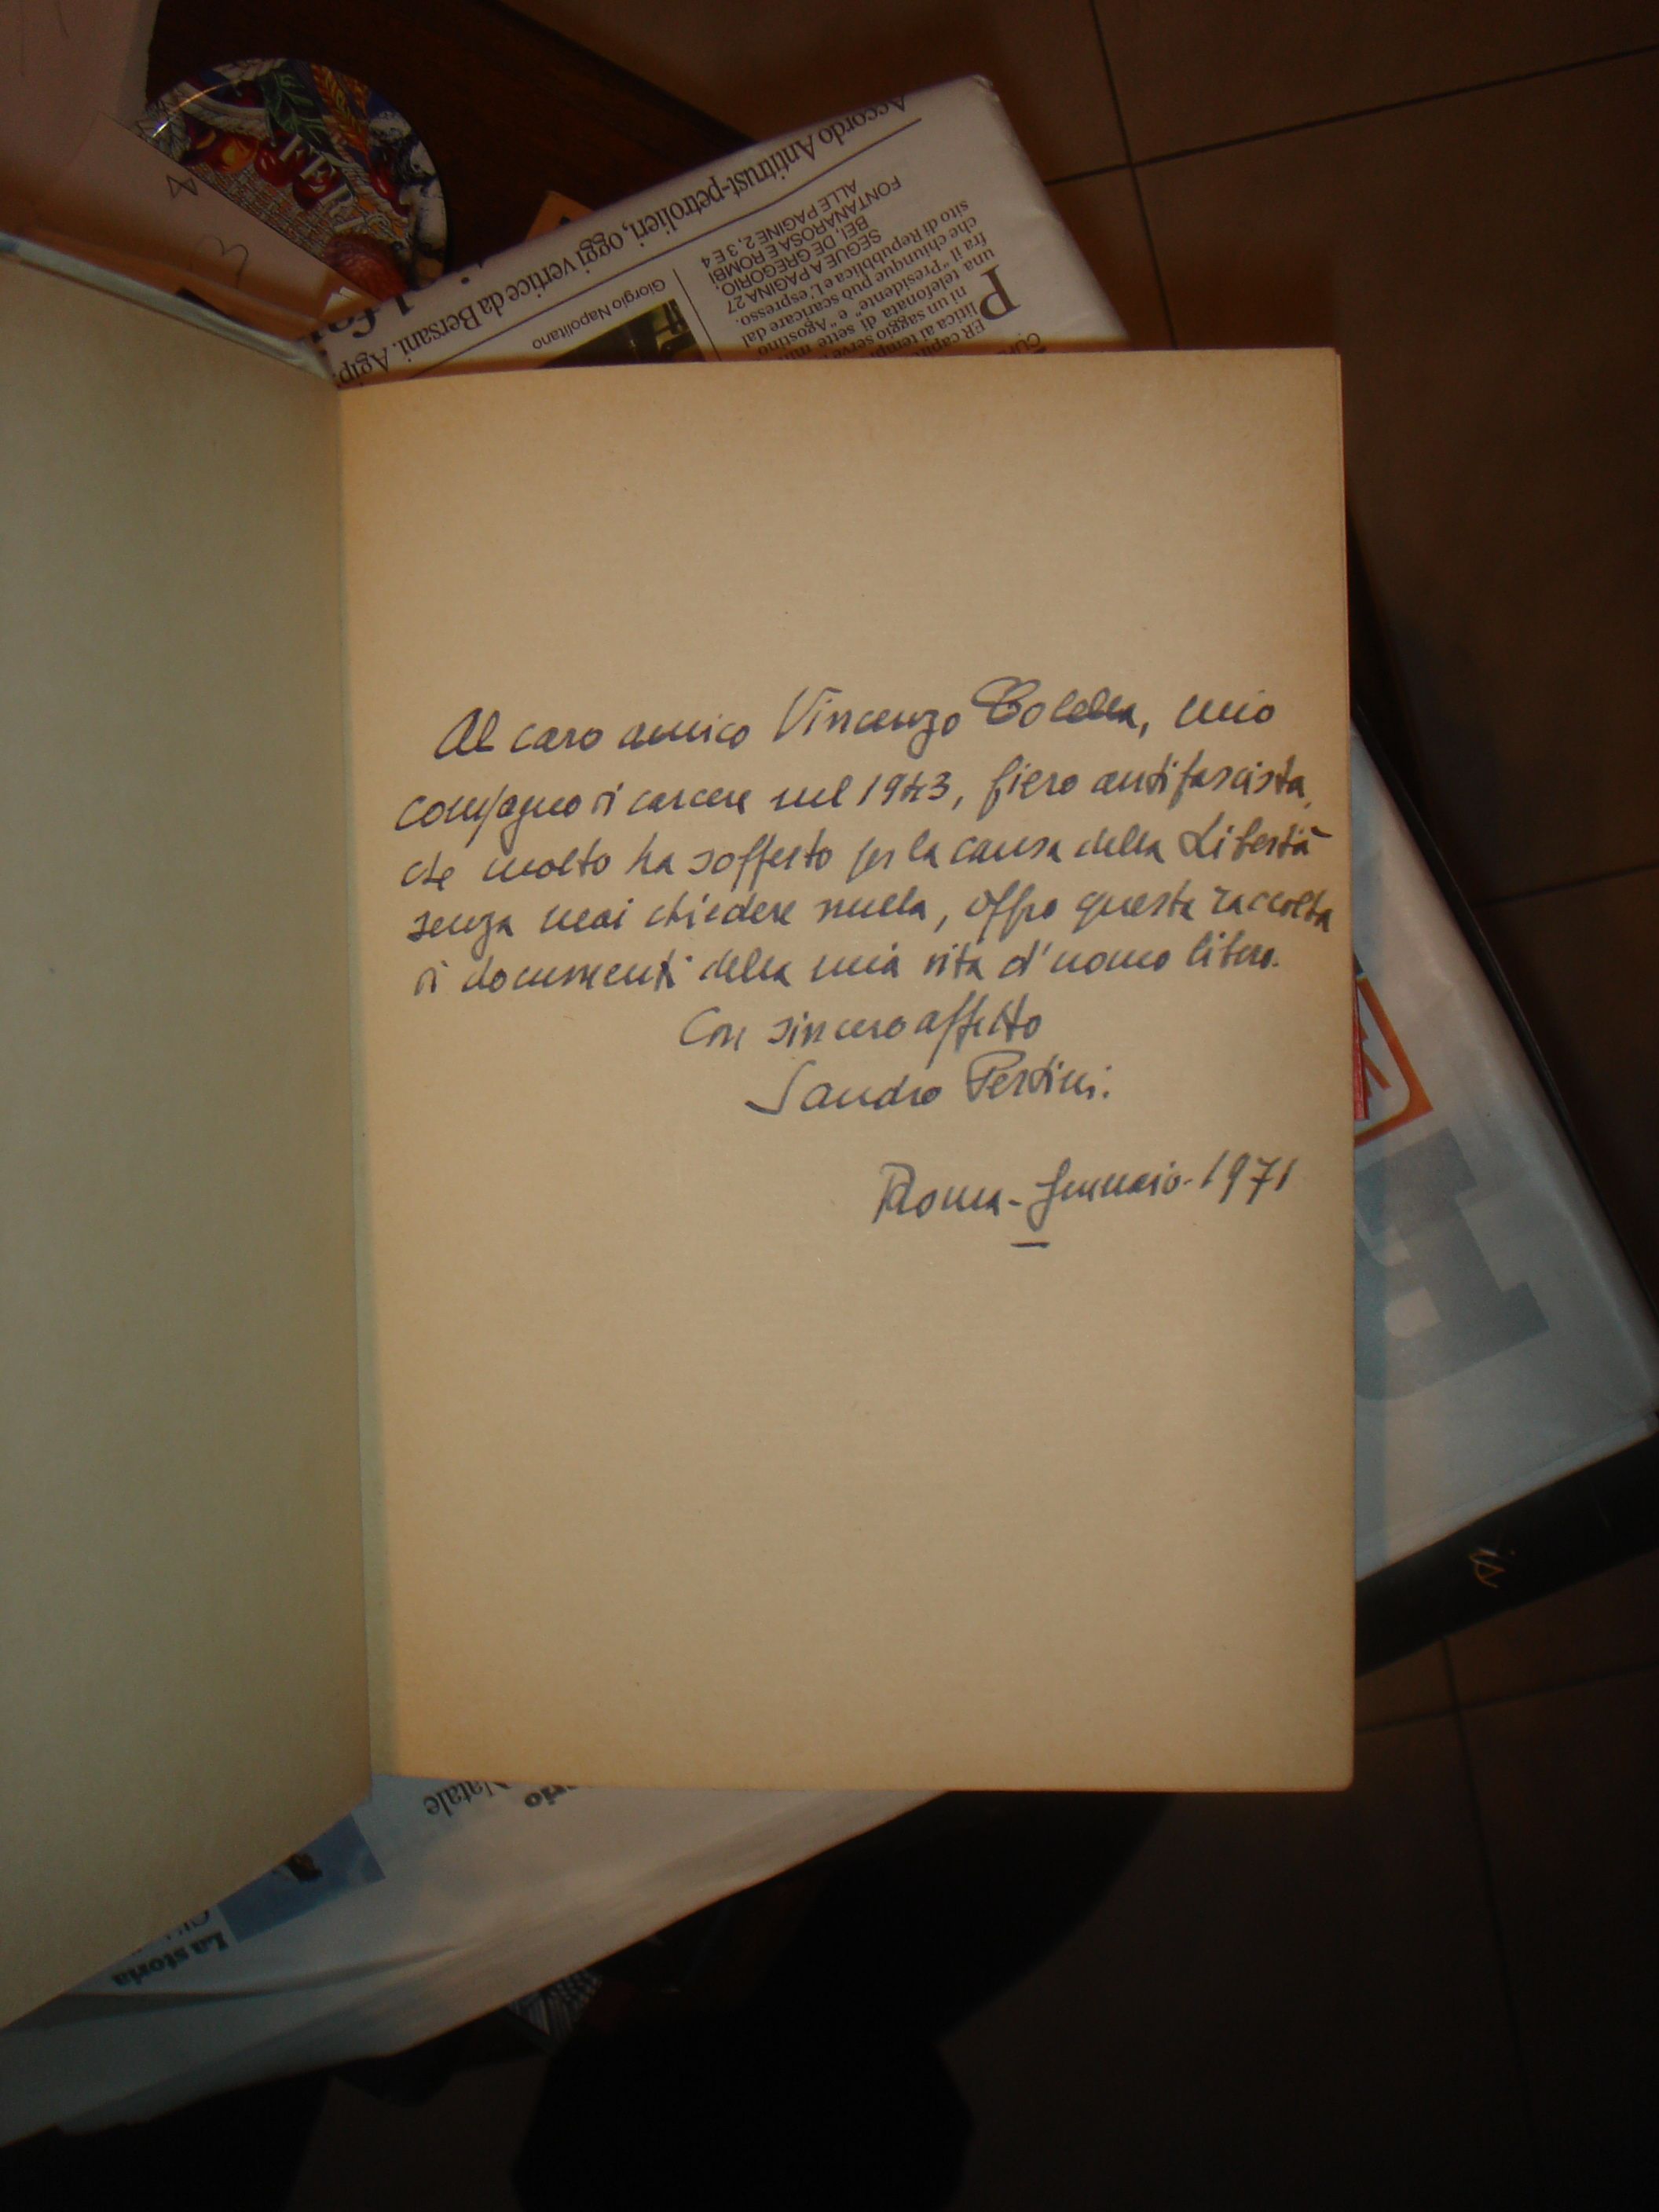 Accordo Antitrust-petrolieri, oggi vertice da Bersani. Agip:
Giorgio Napolitano
una telefonata
fra il "Presidente" e "Agostino
che chiunque può scaricare dal
sito di Repubblica e L'espresso.
SEGUE A PAGINA 27
BEI, DE GREGORIO,
FONTANAROSA E ROMBI
ALLE PAGINE 2, 3 E 4
Al caro amico Vincenzo Colella, mio
compagno di carcere nel 1943, fiero antifascista,
che molto ha sofferto per la causa della Libertà
senza mai chiedere nulla, offro questa raccolta
di documenti della mia vita d'uomo libero.
Con sincero affetto
Sandro Pertini.
Roma - gennaio - 1971
Natale
La storia
is